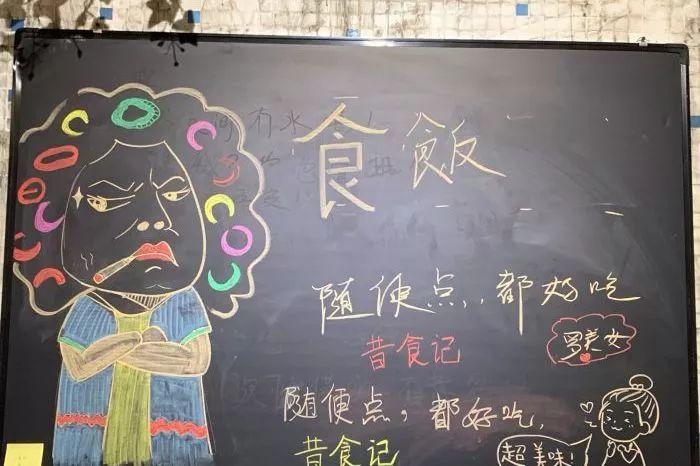 食飯
随便点，都好吃
昔食记
罗美女
随便点，都好吃，
昔食记
超美味！